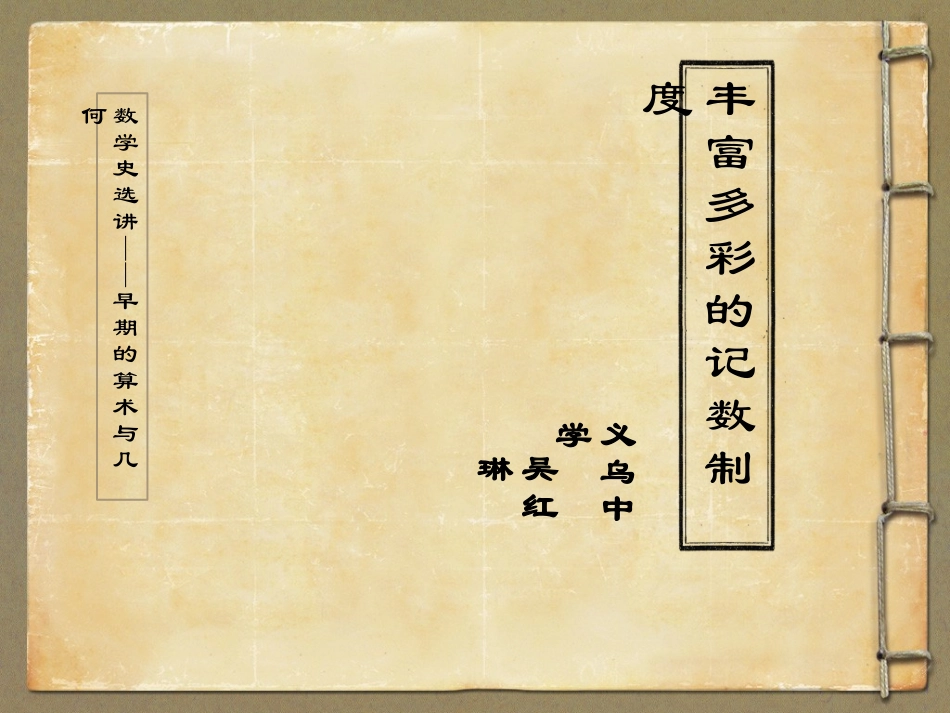 丰富多彩的记数制
度
义乌中
学
吴红
琳
数学史选讲——早期的算术与几
何